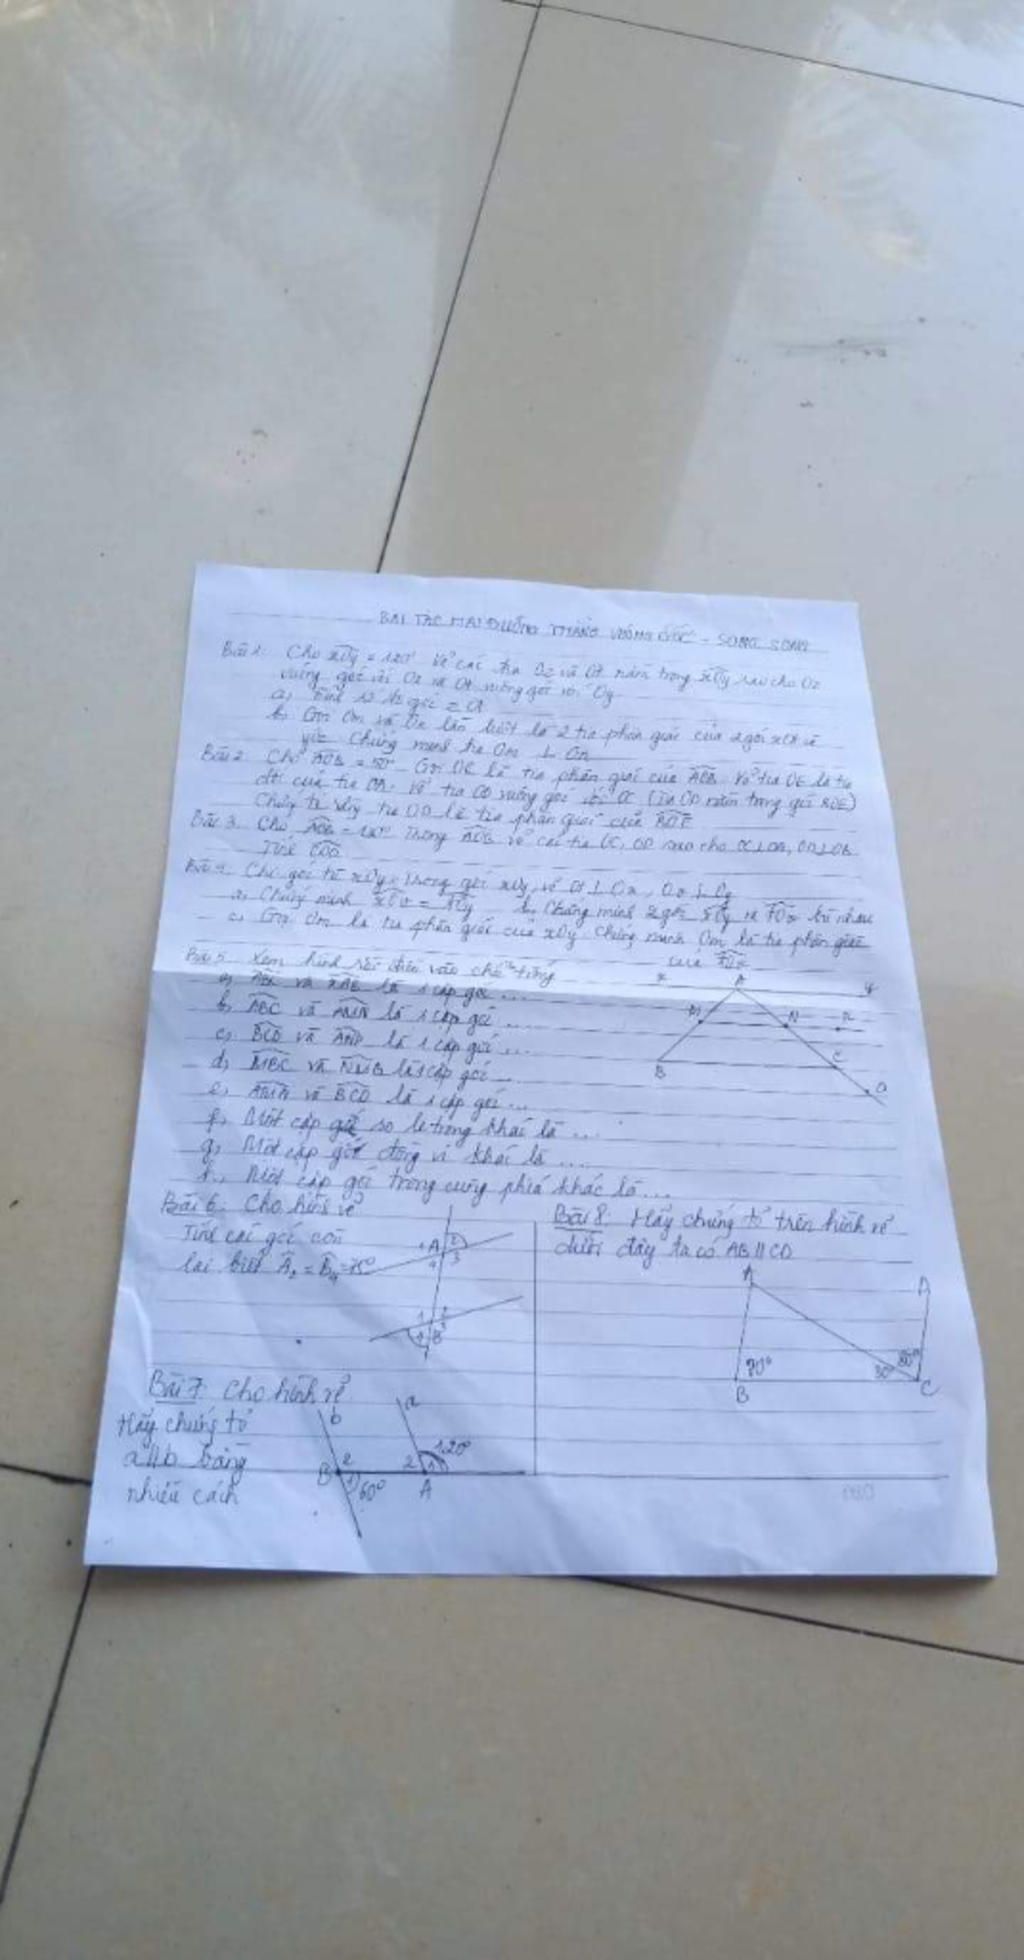 BÀI TẬP HAI ĐƯỜNG THẲNG VUÔNG GÓC - SONG SONG
Bài 1: Cho xOy = 120° Vẽ các tia Oz và Ot nằm trong xOy sao cho Oz
vuông góc với Ox và Ot vuông góc với Oy
a, Tính số đo góc zOt
b, Gọi Om và On lần lượt là 2 tia phân giác của 2 góc xOt và
yOz Chứng minh tia Om ⊥ On
Bài 2: Cho AOB = 50° Gọi OC là tia phân giác của AOB. Vẽ tia OE là tia
đối của tia OA. Vẽ tia OD vuông góc với OC (tia OD nằm trong góc BOE)
Chứng tỏ rằng tia OD là tia phân giác của BOE
Bài 3: Cho AOB = Trong AOB vẽ các tia OC, OD sao cho OC⊥OA, OD⊥OB
Tính COD
Bài 4: Cho góc tù xOy. Trong góc xOy, vẽ Ot ⊥ Ox, Ov ⊥ Oy
a, Chứng minh xOv = tOy b, Chứng minh 2 góc xOy và tOv bù nhau
c, Gọi Om là tia phân giác của xOy. Chứng minh Om là tia phân giác
của tOv
Bài 5: Xem hình rồi điền vào chỗ trống
a, và xAB là 1 cặp góc ...
b, ABC và AMN là 1 cặp góc ...
c, BCD và là 1 cặp góc ...
d, MBC và NMB là 1 cặp góc ...
e, và BCD là 1 cặp góc ...
f, Một cặp góc so le trong khác là ...
g, Một cặp góc đồng vị khác là ...
h, Một cặp góc trong cùng phía khác là ...
x A y
M N
B C
Bài 6: Cho hình vẽ
Tính các góc còn
lại biết
1 A 2
4 3
1 2
4 B 3
Bài 8: Hãy chứng tỏ trên hình vẽ
dưới đây ta có AB // CD
A D
70° 30° 80°
B C
Bài 7: Cho hình vẽ
Hãy chứng tỏ
a//b bằng
nhiều cách
b a
B 2 2 1 120°
1 60° A